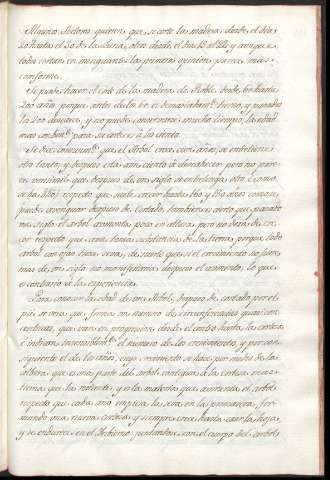 Algunos Autores quieren, que se corte la madera desde el dia
20 hasta el 30 de la Luna; otros desde el dia 15 al 22 y aunque
todos cortan en menguante la primera opinion parece mas
conforme.
Se puede hacer el corte de la madera de Roble desde 60 hasta
200 años porque antes de los 60 es demasiado tierno, y pasados
los 200 decaece, y no puede conservarse mucho tiempo; la edad
mas combte. para su corte es à los ciento
Se dice comunmte. que el Arbol crece cien años, se entretiene
otro tanto, y despues esta cien ciento à descahecer pero no pare-
ce verosimil que despues de un siglo se entretenga otro (como
se ha dho) respecto que suele crecer hasta 160 y 180 años como se
puede averiguar despues de Cortado, tambien es cierto que pasado
un siglo el arbol aumenta poco en altura pero no dexa de cre-
cer respecto que atrae toda substancia de la tierra porque todo
arbol con ojas tiene savia, de suerte que si el crecimiento no fue-
ra mas de un siglo no manifestaria despues el aumento, lo que
es contrario à la experiencia.
Para conocer la edad de un Arbol, despues de cortado por el
pie se vera que forma un numero de circunferencias quasi con-
centricas, que van en progresion desde el centro hasta la corteza
è indican sensiblemte. el numero de los crecimientos, y por con-
siguiente el de los años, cuyo crecimiento se hace por medio de la
albura que es una parte del arbol contigua à la corteza mas
tierna que la restante, y es la materia que aumenta el arbol
respecto que cada año empieza la seva en la primavera, for-
mando una nueva corona y siempre crece hasta caer la hoja
y se endurece en el Hibierno juntandose con el cuerpo del Arbol